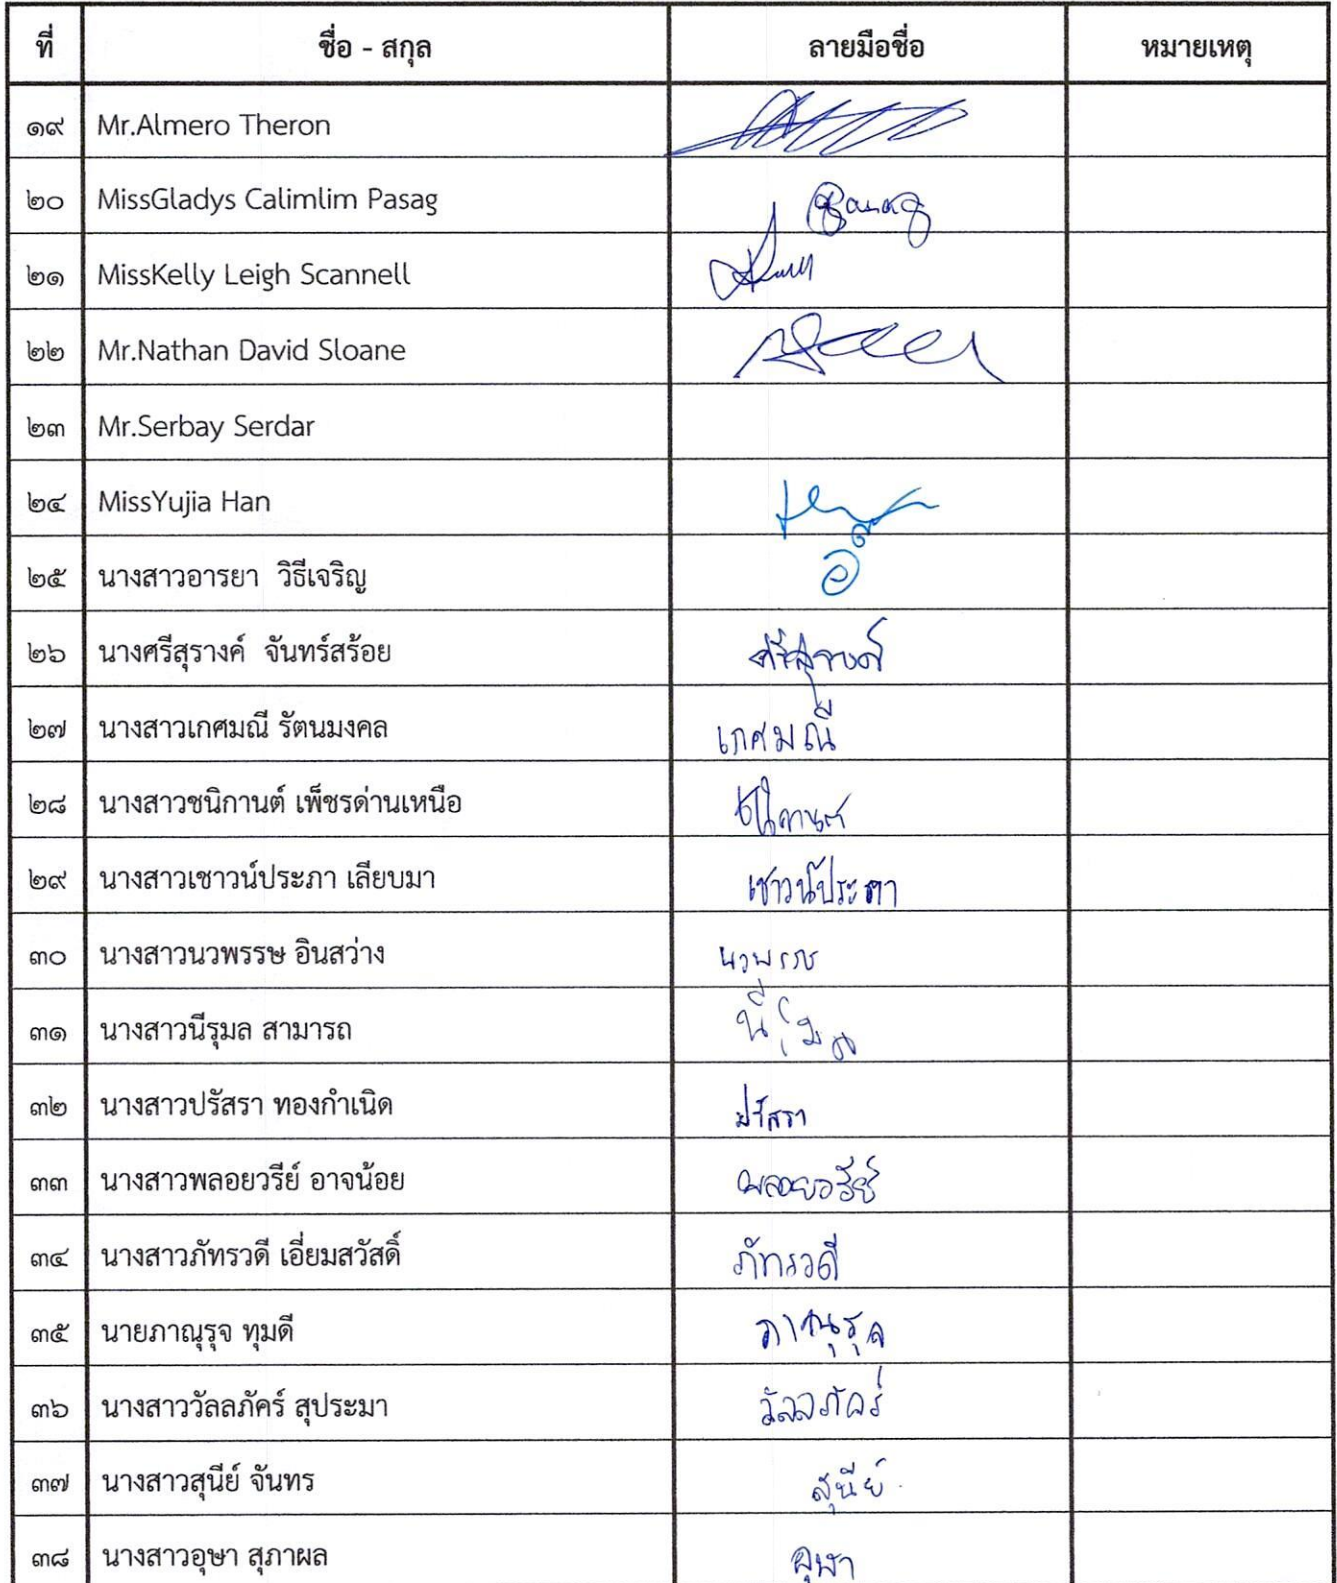 ที่ ชื่อ - สกุล ลายมือชื่อ หมายเหตุ
๑๙ Mr.Almero Theron
๒๐ MissGladys Calimlim Pasag
๒๑ MissKelly Leigh Scannell
๒๒ Mr.Nathan David Sloane
๒๓ Mr.Serbay Serdar
๒๔ MissYujia Han
๒๕ นางสาวอารยา วิธีเจริญ
๒๖ นางศรีสุรางค์ จันทร์สร้อย ศรีสุรางค์
๒๗ นางสาวเกศมณี รัตนมงคล เกศมณี
๒๘ นางสาวชนิกานต์ เพ็ชรด่านเหนือ ชนิกานต์
๒๙ นางสาวเชาวน์ประภา เลียบมา เชาวน์ประภา
๓๐ นางสาวนวพรรษ อินสว่าง นวพรรษ
๓๑ นางสาวนีรุมล สามารถ
๓๒ นางสาวปรัสรา ทองกำเนิด ปรัสรา
๓๓ นางสาวพลอยวรีย์ อาจน้อย พลอยวรีย์
๓๔ นางสาวภัทรวดี เอี่ยมสวัสดิ์ ภัทรวดี
๓๕ นายภาณุรุจ ทุมดี ภาณุรุจ
๓๖ นางสาววัลลภัคร์ สุประมา วัลลภัคร์
๓๗ นางสาวสุนีย์ จันทร สุนีย์
๓๘ นางสาวอุษา สุภาผล อุษา